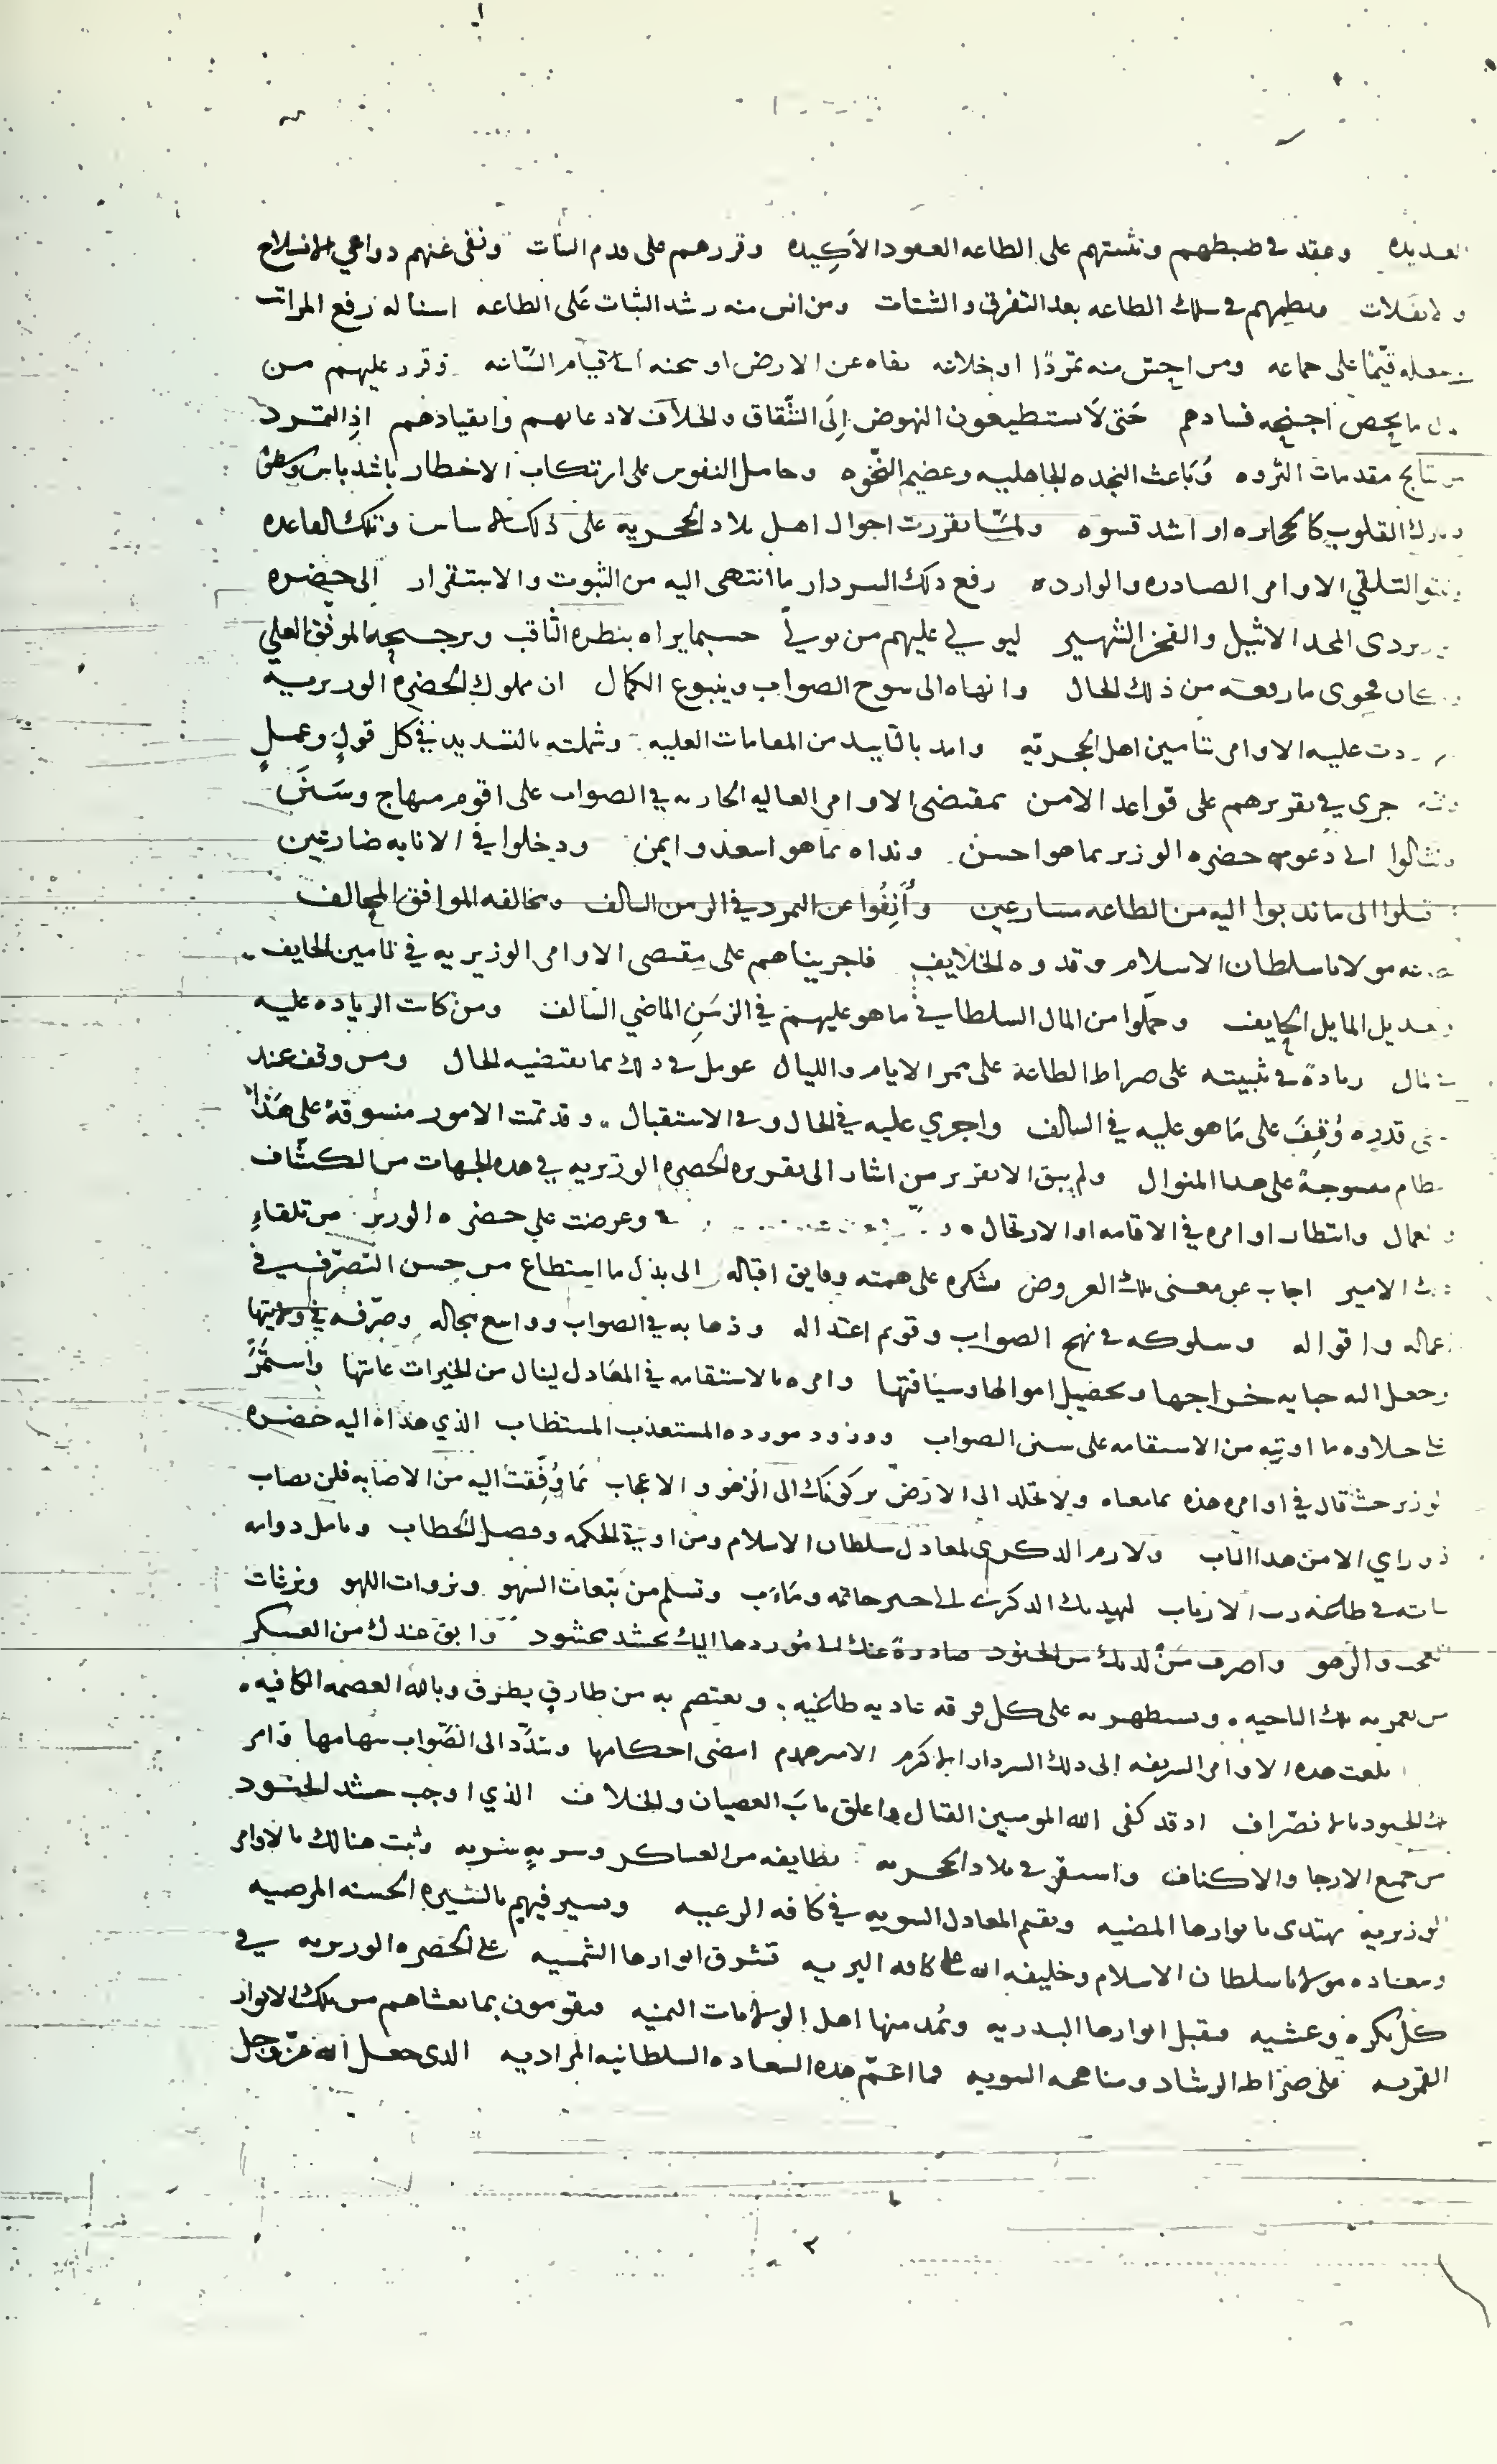 العديده وعقد في ضبطهم وتثبتهم على الطاعه العهود الأكيده وقررهم على قدم الثبات ونفى عنهم دواعي الانسلاخ
والانفلات ونظمهم في سلك الطاعه بعد التفرق والشتات ومن انس منه رشد الثبات على الطاعه اسنا له رفع المراتب
وجعله قيّمًا على جماعه ومن احسّ منه تمرّدًا او خلافه نفاه عن الارض او سجنه الى قيام السّاعه وقرر عليهم من
المال ما يحص اجنحه فسادهم حتى لا يستطيعون النهوض إلى الشّقاق والخلاف لادعانهم وانقيادهم اذِ التمرد
من نتايج مقدمات الثروه وبَاعث النجده الجاهليه وعضيم النّخوه وحامل النفوس على ارتكاب الاخطار باشد باس
القلوب كالحجاره او اشد قسوه ولمّا تقررت احوال اهل بلاد الحجريه على ذلك الاساس وتلك القاعده
التلقي الاوامر الصادره والوارده رفع ذلك السردار ما انتهى اليه من الثبوت والاستقرار الى حضره
الوزير ذى المجد الاثيل والفخر الشهير ليولي عليهم من يولي حسبما يراه بنظره الثاقب ويرجحه الموفق العلي
وكان فحوى ما رفعه من ذلك الحال وانهاه الى سوح الصواب وينبوع الكمال ان مملوك الحضره الوزيرية
وردت عليه الاوامر بتامين اهل الحجريّه وامد بالتأييد من المقامات العليه وشملته بالتسديد في كل قولٍ وعملٍ
جرى في تقريرهم على قواعد الامن بمقتضى الاوامر العاليه الجاريه في الصواب على اقوم منهاج وسَنَن
الى دعوه حضره الوزير بما هو احسن ونداه بما هو اسعد وايمن ودخلوا في الانابه ضارعين
الى ما ندبوا اليه من الطاعه مسارعين وأَنِفُوا عن التمرد في الزمن السالف ومخالفه الموافق المحالف
مولانا سلطان الاسلام وقدوه الخلايف فاجريناهم على مقتضى الاوامر الوزيريه في تامين الخايف
وتعديل المايل الحايف وحمّلوا من المال السلطاني ما هو عليهم في الزمَنِ الماضي السّالف ومن كانت الزياده عليه
في المال زيادة في تثبيته على صراط الطاعة على ممر الايام والليال عومل في ذلك بما يقتضيه الحال ومن وقف عند
قدره وُقِفَ على مَا هو عليه في السالف واجري عليه في الحال وفي الاستقبال وقد تمت الامور منسوقةً على هَذا
النظام منسوجةً على هذا المنوال ولم يبق الا تقرير من اشار الى تقريره الحضره الوزيريه في هذه الجهات من الكشّاف
والعمال وانتظار اوامره في الاقامه او الارتحال وعرضت على حضره الوزير من تلقاءِ
ذلك الامير اجاب عن معنى تلك العروض بشكره على همته وفايق اقباله الى بذل ما استطاع من حسن التصرّف في
اعماله واقواله وسلوكه في نهج الصواب وقويم اعتداله وذهابه في الصواب وواسع مجاله وصرّفه في ولايتها
وجعل اليه جبايه خراجها وتحصيل اموالها وسياقتها وامره بالاستقامه في المعَادل لينال من الخيرات غايتها واستمّرَّ
على حلاوه ما اوتيه من الاستقامه على سنن الصواب وورود مورده المستعذب المستطاب الذي هداه اليه حضره
الوزير حيث قال في اوامره هذه بما معناه ولا تخلد الى الارض بركونك الى الزهو والاعجاب بمَا وُفّقتَ اليه من الاصابه فلن يصاب
ذو راي الا من هذا الباب ولازم الذكرى لمعادل سلطان الاسلام ومن اوتي الحكمه وفصل الخطاب
في طاعه رب الارباب لتهديك الذكرى الى خير خاتمه ومَآب وتسلم من تبعات السهو ونزوات اللهو ونزغات
العجب والزهو واصرف مَنْ لديك من الجنود صادرةً عنك الى مُوردها اليك بحشد محشود وَابق عندك من العسكر
من تعمر به تلك الناحيه وتستظهر به على كل فرقه عاديه طاغيه ويعتصم به من طارقٍ يطرق وبالله العصمه الكافيه
بلغت هذه الاوامر الشريفه إلى ذلك السردار الاكرم الامير امضى احكامها وسدّد الى الصّواب سهامها وامر
تلك الجنود بالانصّراف اد قد كفى الله المومنين القتال واغلق باب العصيان والخلاف الذي اوجب حشد الجنود
من جميع الارجا والاكناف واستقر في بلاد الحجريه بطايفه من العساكر وسريه سريه وثبت هنالك بالاوامر
الوزيريه يهتدى بانوارها المضيه ويقيم المعادل السويه في كافه الرعيه ويسير فيهم بالسّيره الحسنه المرضيه
مولانا سلطان الاسلام وخليفه الله على كافه البريه تشرق انوارها الشمسيه على الحضره الوزيريه في
كلّ بكرهٍ وعشيه فيقبل انوارها البدريه وتُمد منها اهل الولامات اليمنيه فيقومون بما يغشاهم من تلك الانوار
القمريه على صَراط الرشاد ومناهجه السويه فما اعمّ هذه السعاده السلطانيه المراديه الذى جعل الله عزّ وجل